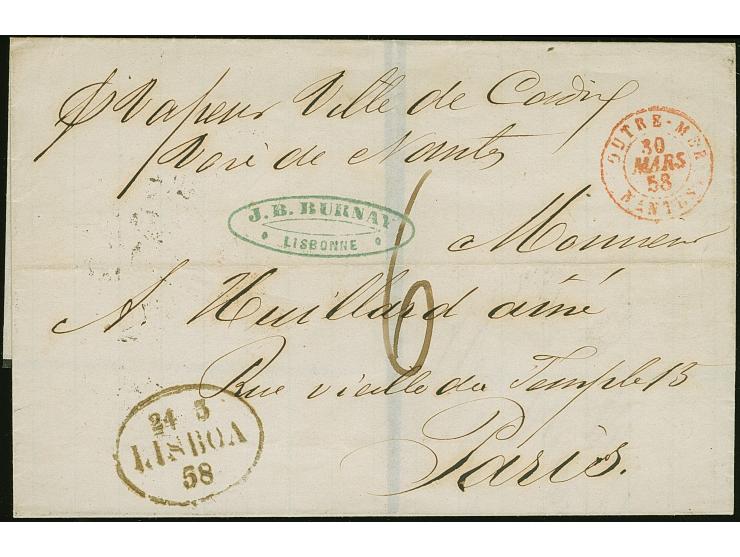 p Vapeur Ville de Cadix
Voie de Nantes
OUTRE-MER
30
MARS
58
NANTES
J. B. BURNAY
LISBONNE
6
Monsieur
A. Huillard aîné
Rue vieille du Temple 15
Paris.
24 3
LISBOA
58